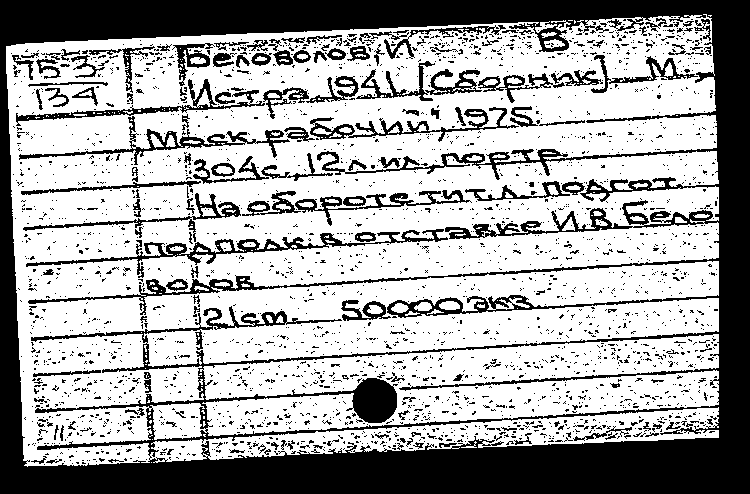 Беловолов, И В
153
134
Истра. 1941. [Сборник]. М.,
„Моск. рабочий“, 1975.
304с., 12 л. ил., портр.
На обороте тит. л.: подгот.
подполк. в отставке И.В. Бело-
волов
21см. 50000 экз.